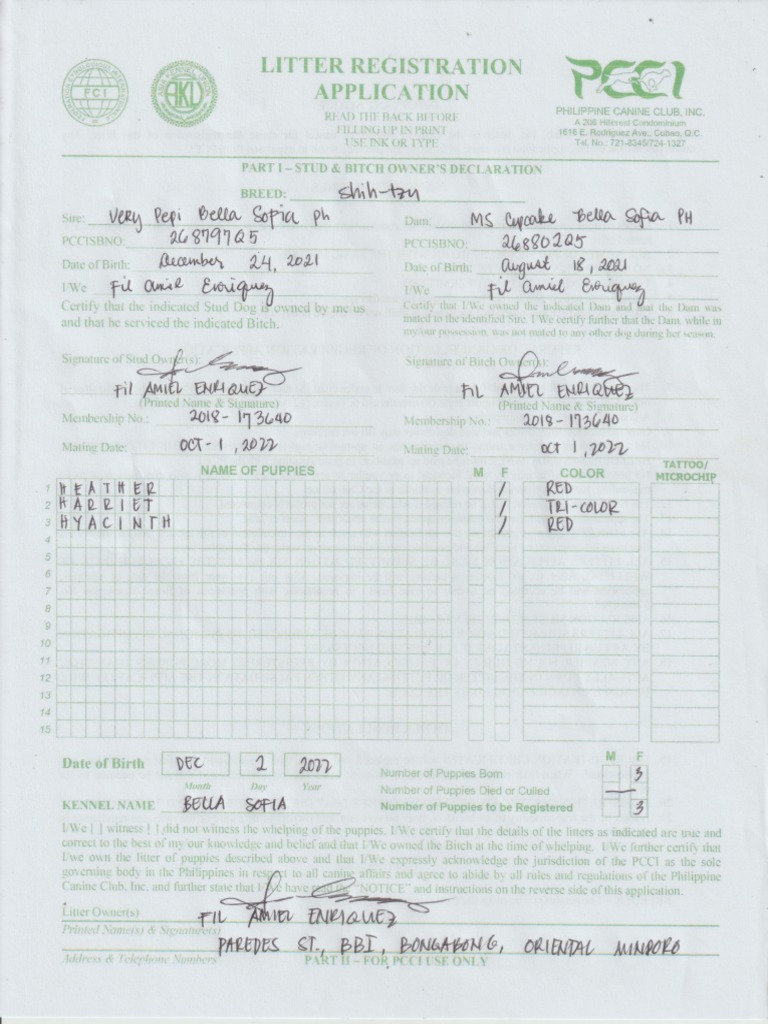 LITTER REGISTRATION
APPLICATION
READ THE BACK BEFORE
FILLING UP IN PRINT
USE INK OR TYPE
FCI
AKU
PCCI
PHILIPPINE CANINE CLUB, INC.
A 206 Hillcrest Condominium
1616 E. Rodriguez Ave., Cubao, Q.C.
Tel. No.: 721-8345/724-1327
PART I – STUD & BITCH OWNER'S DECLARATION
BREED: Shih-tzu
Sire: Very Pepi Bella Sofia Ph Dam: MS Cupcake Bella Sofia PH
PCCISBNO: 26879725 PCCISBNO: 26880225
Date of Birth: December 24, 2021 Date of Birth: August 18, 2021
I/We Fil Amiel Enriquez I/We Fil Amiel Enriquez
Certify that the indicated Stud Dog is owned by me/us Certify that I/We owned the indicated Dam and that the Dam was
and that he serviced the indicated Bitch. mated to the identified Sire. I/We certify further that the Dam, while in
my/our possession, was not mated to any other dog during her season.
Signature of Stud Owner(s): Signature of Bitch Owner(s):
FIL AMIEL ENRIQUEZ FIL AMIEL ENRIQUEZ
(Printed Name & Signature) (Printed Name & Signature)
Membership No.: 2018-173640 Membership No.: 2018-173640
Mating Date: OCT-1, 2022 Mating Date: OCT 1, 2022
NAME OF PUPPIES M F COLOR TATTOO/
MICROCHIP
1 HEATHER / RED
2 HARRIET / TRI-COLOR
3 HYACINTH / RED
4
5
6
7
8
9
10
11
12
13
14
15
Date of Birth DEC 2 2022 M F
Month Day Year
Number of Puppies Born 3
Number of Puppies Died or Culled —
KENNEL NAME BELLA SOFIA Number of Puppies to be Registered 3
I/We [ ] witness [ ] did not witness the whelping of the puppies. I/We certify that the details of the litters as indicated are true and
correct to the best of my/our knowledge and belief and that I/We owned the Bitch at the time of whelping. I/We further certify that
I/we own the litter of puppies described above and that I/We expressly acknowledge the jurisdiction of the PCCI as the sole
governing body in the Philippines in respect to all canine affairs and agree to abide by all rules and regulations of the Philippine
Canine Club, Inc. and further state that I/We have read the "NOTICE" and instructions on the reverse side of this application.
Litter Owner(s) FIL AMIEL ENRIQUEZ
Printed Name(s) & Signature(s)
PAREDES ST., BBI, BONGABONG, ORIENTAL MINDORO
Address & Telephone Numbers PART II – FOR PCCI USE ONLY